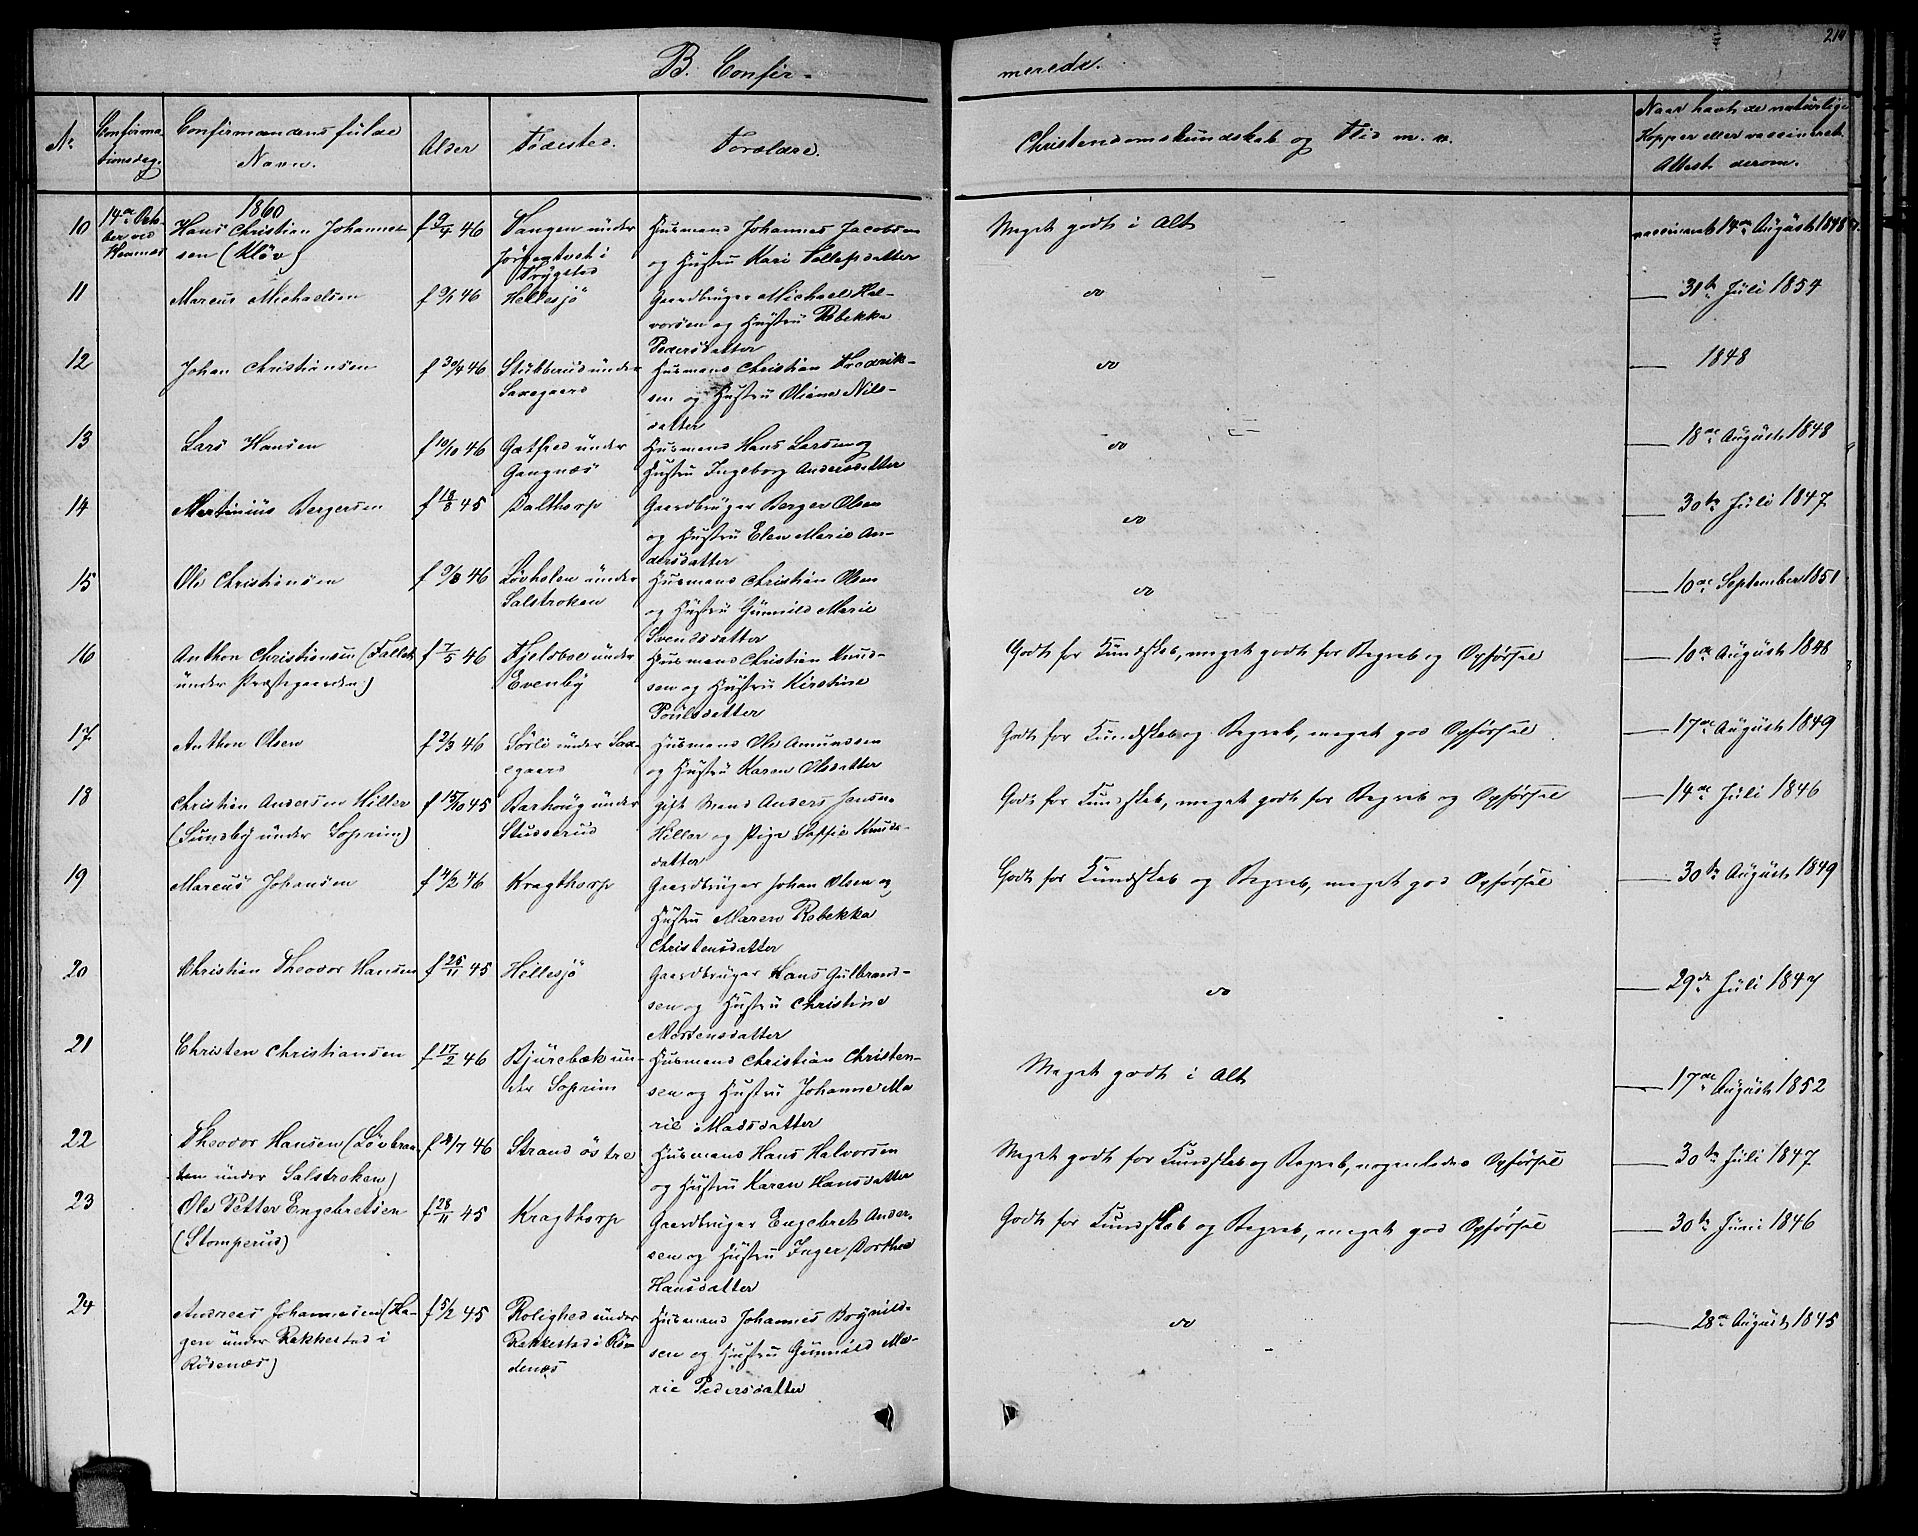 214
B. Confir-
merede.
No
Confirma-
tionsdag.
Confirmandens fulde
Navn.
Alder
Fødested.
Forældre.
Christendomskundskab og Flid m. v.
Naar havt de naturlige
Kopper eller vaccineret.
Attest derom.
1860
10
14de Octo-
ber ved
Hemnæs
Hans Christian Johannes-
sen (Kløv)
f 9/4 46
Vangen under
i
Trygstad
Husmand Johannes Jacobsen
og Hustru Kari Tollefsdatter
Meget godt i Alt
vaccineret 14de August 1848
11
Marcus Michaelsen
f 9/1 46
Hellesjö
Gaardbruger Michael Hal-
vorsen og Hustru Rebekka
Pedersdatter
do
31te Juli 1854
12
Johan Christiansen
f 30/9 46
Stubberud under
Saxegaard
Husmand Christian Fredrik-
sen og Hustru Oliane Nils-
datter
do
1848
13
Lars Hansen
f 10/10 46
under
Gangnæs
Husmand Hans Larsen og
Hustru Ingeborg Andersdatter
do
18de August 1848
14
Martinius Bergersen
f 18/8 45
Dalthorp
Gaardbruger Berger Olsen
og Hustru Elen Marie An-
dersdatter
do
30te Juli 1847
15
Ole Christiansen
f 9/8 46
Løvholen under
Salstroken
Husmand Christian Olsen
og Hustru Gunnild Marie
Svendsdatter
do
10de September 1851
16
Anthon Christiansen (Fallet
under Præstegaarden)
f 7/5 46
Fjeldboe under
Evenby
Husmand Christian Knud-
sen og Hustru Kirstine
Poulsdatter
Godt for Kundskab, meget godt for Begreb og Opførsel
10de August 1848
17
Anthon Olsen
f 2/3 46
Sörli under Sax-
egaard
Husmand Ole Amundsen
og Hustru Karen Olsdatter
Godt for Kundskab og Begreb, meget god Opførsel
17de August 1849
18
Christian Andersen Hiller
(Sundby under Soprim)
f 15/10 45
Barhoug under
Studserud
gift Mand Anders Jansen
Hiller og Pige Saffie Knuds-
datter
Godt for Kundskab, meget godt for Begreb og Opførsel
14de Juli 1846
19
Marcus Johansen
f 4/2 46
Kragthorp
Gaardbruger Johan Olsen og
Hustru Maren Rebekka
Christensdatter
Godt for Kundskab og Begreb, meget god Opførsel
30te August 1849
20
Christian Theodor Hansen
f 25/11 45
Hellesjö
Gaardbruger Hans Gulbrand-
sen og Hustru Christine
Mortensdatter
do
29de Juli 1847
21
Christen Christiansen
f 17/2 46
Bjürebæk un-
der Soprim
Husmand Christian Christen-
sen og Hustru Johanne Ma-
rie Madsdatter
Meget godt i Alt
17de August 1852
22
Theodor Hansen (Løvbraa-
ten under Salstroken)
f 2/7 46
Strand østre
Husmand Hans Halvorsen
og Hustru Karen Hansdatter
Meget godt for Kundskab og Begreb, nogenledes Opførsel
30te Juli 1847
23
Ole Petter Engebretsen
(Stomperud)
f 28/11 45
Kragthorp
Gaardbruger Engebret Ander-
sen og Hustru Inger Dorthea
Hansdatter
Godt for Kundskab og Begreb, meget god Opførsel
30te Juni 1846
24
Andreas Johannesen (Ha-
gen under Rakkestad i
Rødenæs)
f 5/2 45
Rolighed under
Rakkestad i Rø-
denæs
Husmand Johannes Brynild-
sen og Hustru Gunnild Ma-
rie Pedersdatter
do
28de August 1845